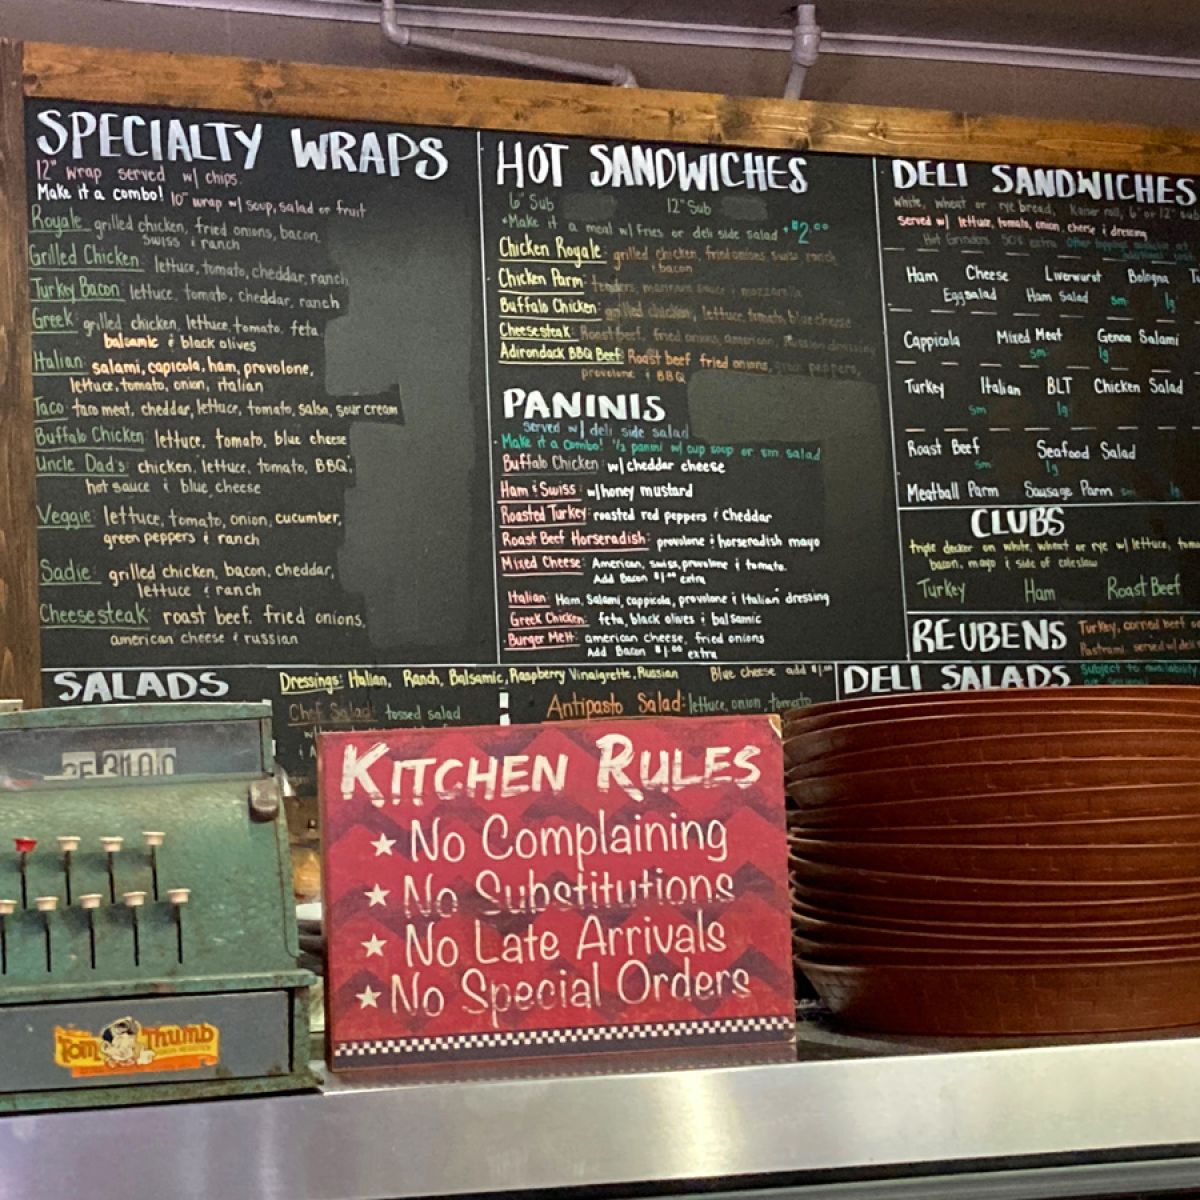 SPECIALTY WRAPS
12" wrap served w/ chips.
Make it a combo! 10" wrap w/ soup, salad or fruit
Royale grilled chicken, fried onions, bacon,
swiss & ranch
Grilled Chicken: lettuce, tomato, cheddar, ranch
Turkey Bacon lettuce, tomato, cheddar, ranch
Greek: grilled chicken, lettuce, tomato, feta
balsamic & black olives
Italian: salami, capicola, ham, provolone,
lettuce, tomato, onion, italian
Taco: taco meat, cheddar, lettuce, tomato, salsa, sour cream
Buffalo Chicken: lettuce, tomato, blue cheese
Uncle Dad's: chicken, lettuce, tomato, BBQ,
hot sauce & blue cheese
Veggie: lettuce, tomato, onion, cucumber,
green peppers & ranch
Sadie: grilled chicken, bacon, cheddar,
lettuce & ranch
Cheesesteak: roast beef, fried onions,
american cheese & russian
HOT SANDWICHES
6" Sub 12" Sub
*Make it a meal w/ fries or deli side salad + $2.00
Chicken Royale: grilled chicken, fried onions swiss ranch
& bacon
Chicken Parm: tenders, marinara sauce & mozzarella
Buffalo Chicken: grilled chicken, lettuce, tomato, blue cheese
Cheesesteak: Roast beef, fried onions, american, Russian dressing
Adirondack BBQ Beef: Roast beef fried onions, green peppers,
provolone & BBQ
PANINIS
served w/ deli side salad
Make it a combo! 1/2 panini w/ cup soup or sm. salad
Buffalo Chicken w/ cheddar cheese
Ham & Swiss: w/ honey mustard
Roasted Turkey: roasted red peppers & Cheddar
Roast Beef Horseradish: provolone & horseradish mayo
Mixed Cheese: American, swiss, provolone & tomato.
Add Bacon $1.00 extra
Italian: Ham, Salami, cappicola, provolone & Italian dressing
Greek Chicken: feta, black olives & balsamic
Burger Melt: american cheese, fried onions
Add Bacon $1.00 extra
DELI SANDWICHES
white, wheat or rye bread, Kaiser roll, 6" or 12" sub
served w/ lettuce, tomato, onion, cheese & dressing
Hot Grinders 50¢ extra Other toppings available at
Ham Cheese Liverwurst Bologna
Eggsalad Ham Salad sm lg
Cappicola Mixed Meat Genoa Salami
sm lg
Turkey Italian BLT Chicken Salad
sm lg
Roast Beef Seafood Salad
sm lg
Meatball Parm Sausage Parm sm lg
CLUBS
triple decker on white, wheat or rye w/ lettuce,
bacon, mayo & side of coleslaw
Turkey Ham Roast Beef
REUBENS Turkey, corned beef
Pastrami served w/
SALADS Dressings: Italian, Ranch, Balsamic, Raspberry Vinaigrette, Russian Blue cheese add $1.00
Chef Salad: tossed salad
Antipasto Salad: lettuce, onion, tomato
DELI SALADS Subject to availability
KITCHEN RULES
★ No Complaining
★ No Substitutions
★ No Late Arrivals
★ No Special Orders
Tom Thumb